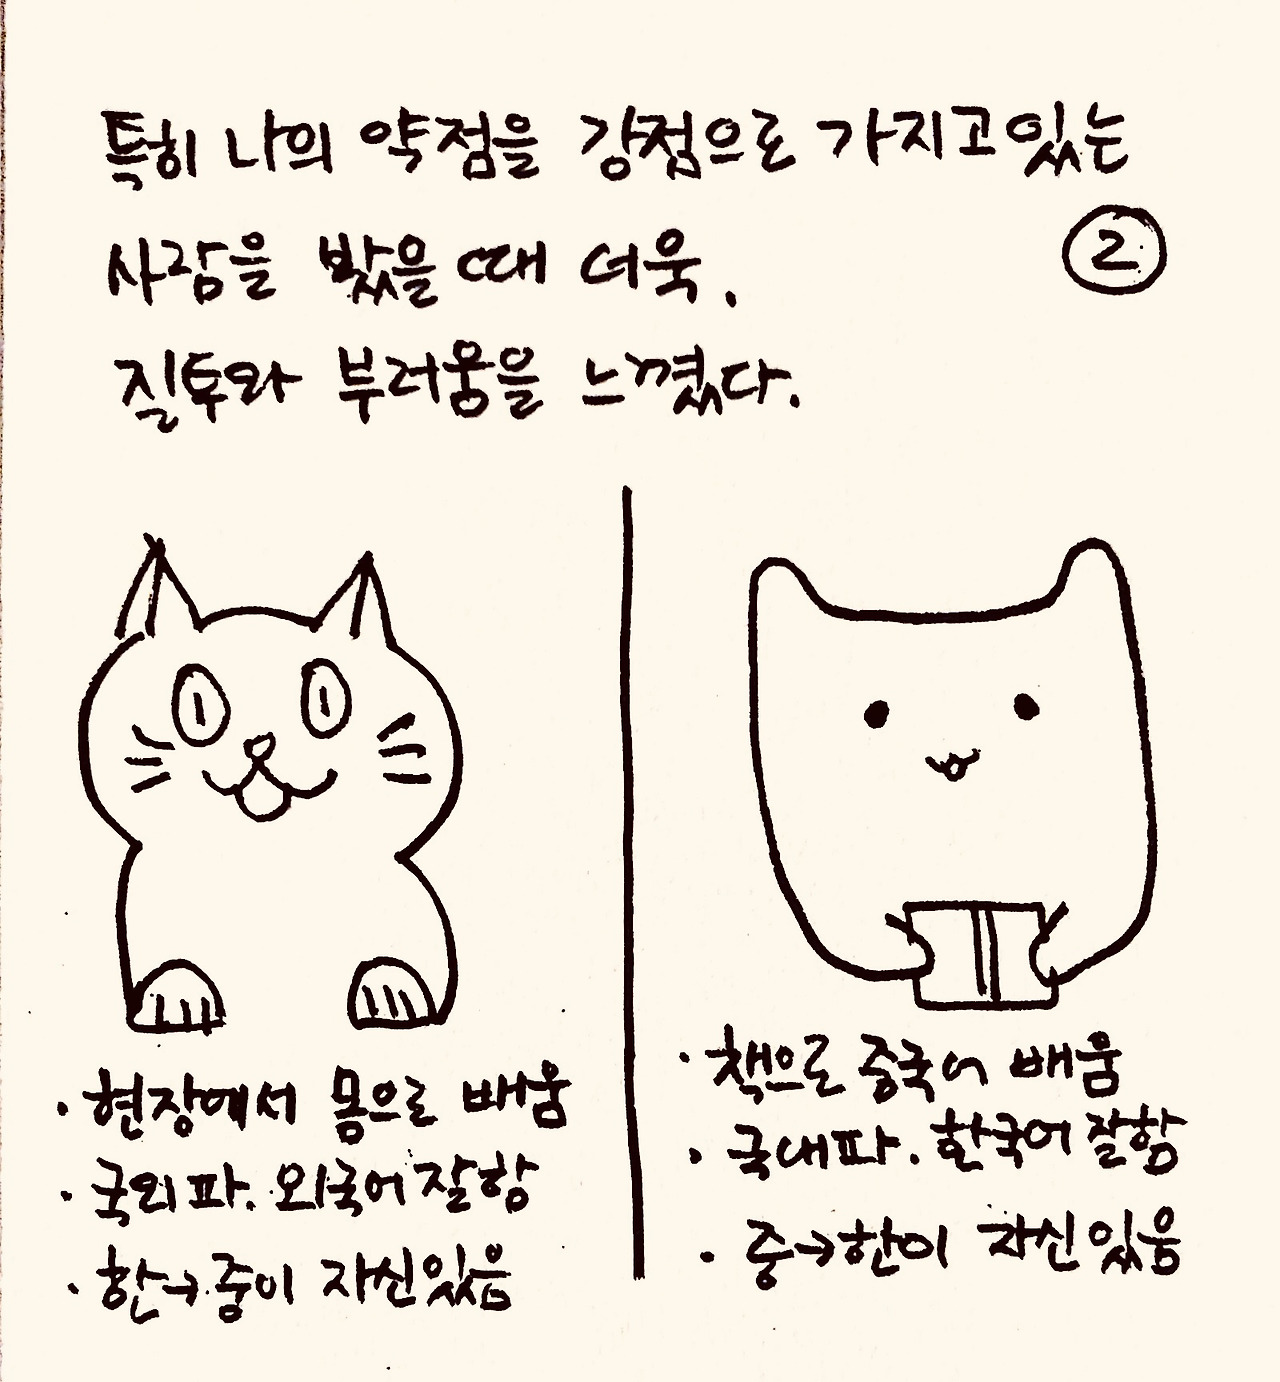 특히 나의 약점을 강점으로 가지고있는
사람을 봤을 때 더욱.
②
질투와 부러움을 느꼈다.
· 현장에서 몸으로 배움
· 국외파. 외국어 잘함
· 한→중이 자신있음
· 책으로 중국어 배움
· 국내파. 한국어 잘함
· 중→한이 자신있음